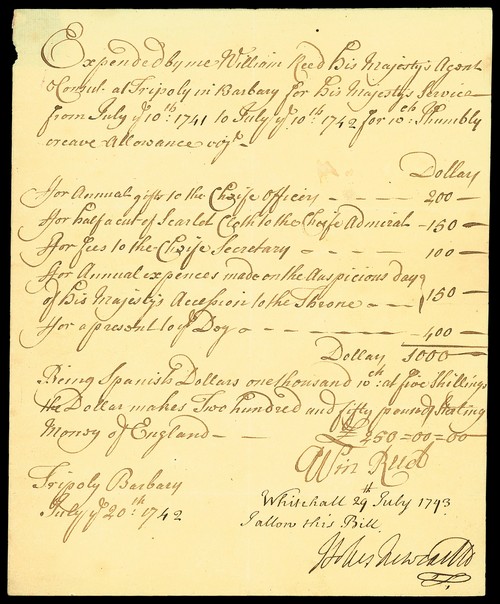 Expended by me William Reed His Majesty's Agent
& Consul at Tripoly in Barbary for his Majesty's Service
from July ye 10th: 1741 to July ye 10th: 1742 for wch: I humbly
creave Allowance vizt.
Dollars
ffor Annual gifts to the Cheife Officers - - - - 200 -
ffor half a cut of Scarlet Cloth to the Cheife Admiral - 150 -
ffor fees to the Cheife Secretary - - - - 100 -
ffor Annual expences made on the Auspicious day
of His Majesty's Accession to the Throne - - - 150 -
ffor a present to ye Dey - - - - 400 -
Dollars 1000 -
Being Spanish Dollars one thousand wch: at five Shillings
the Dollar makes Two hundred and fifty pounds Sterling
Money of England - - £ 250=00=00
Wm Reed
Tripoly Barbary
July ye 20th: 1742
Whitehall 29th July 1743
I allow this Bill
Holles Newcastle